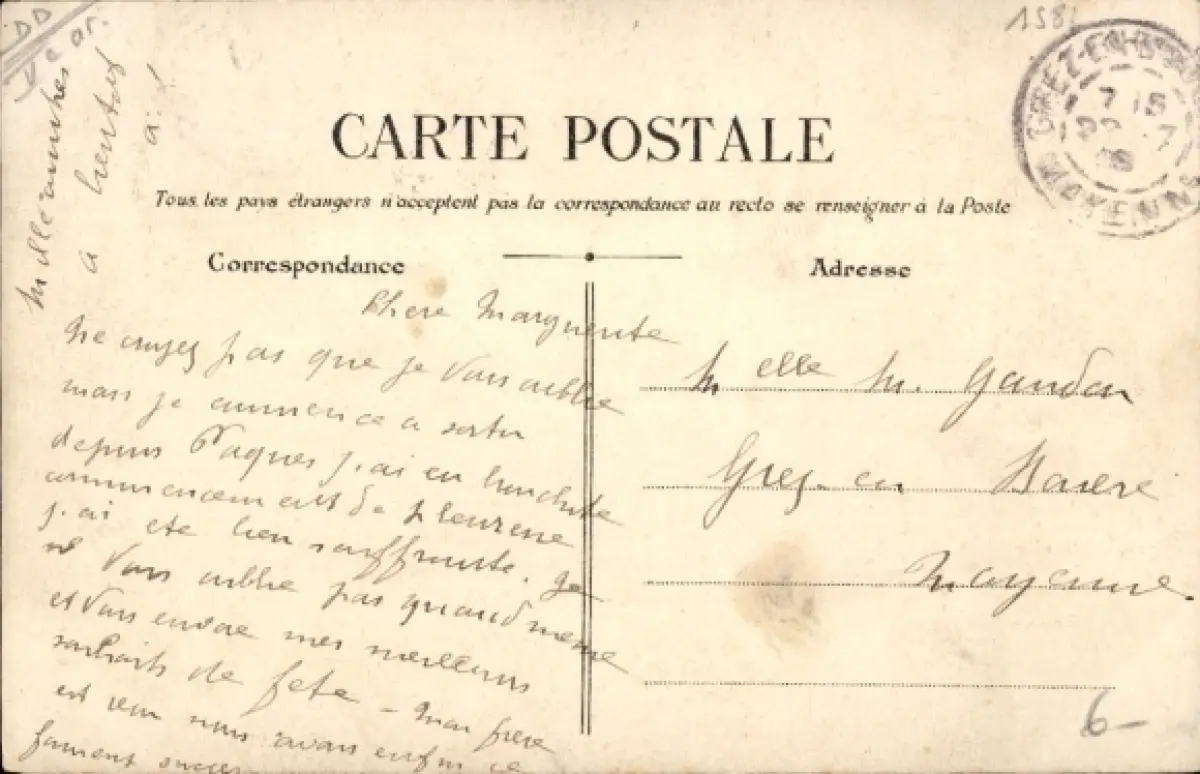 1581
GREZ-EN-B
7 15
7
MAYENNE
CARTE POSTALE
Tous les pays étrangers n'acceptent pas la correspondance au recto se renseigner à la Poste
Correspondance
Adresse
Chere Marguerite
Ne croyez pas que je vous oublie
mais je commence a sortir
depuis Paques j'ai eu bronchite
commencement de pleuresie
j'ai ete bien souffrante. Je
ne vous oublie pas quand meme
et vous envoie mes meilleurs
souhaits de fete - Mon frere
est venu nous avons enfin ce
fameux
Mille amities
a bientot
Melle M. Gaudon
Grez-en Bouere
Mayenne
6-